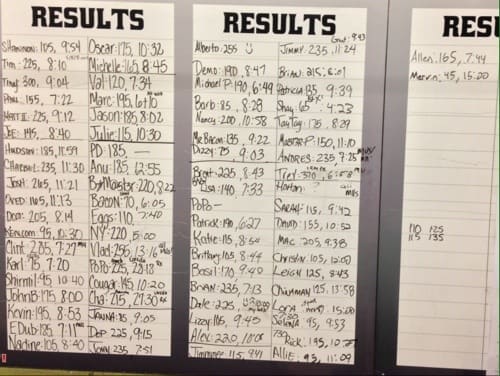 RESULTS
Shannon: 105, 9:54
Tim: 225, 8:10
Tiny: 200, 9:04
Paul: 155, 7:22
Matt II: 225, 9:12
Joe: 145, 8:40
Hudson: 185, 11:59
Charissa: 230, 11:30
Josh: 265, 11:21
Oved: 165, 11:13
Door: 205, 8:14
Kericom: 95, 10:30
Clint: 235, 7:27
Karl: 75, 7:20
Shirmi: 95 10:40
JohnB: 175 8:00
Kevin: 95, 8:53
EDub: 185, 7:11
Nadine: 105, 8:40
Oscar: 175, 10:32
Michelle: 165, 8:45
Val: 120, 7:34
Marc: 195, 6:10
Jason: 185, 8:02
Julie: 115, 10:30
PD: 185, —
Anu: 185 12:55
ByMaster: 220, 8:22
Bacon: 70, 6:05
Eggs: 110, 7:40
NY: 220, 5:00
Vlad: 255, 13:16
PoPo: 225, 22:18
Cougar: 145, 10:20
Cha: 215, 21:30
Janna: 35, 9:05
Dep: 225, 9:15
Jenny: 235, 7:51
RESULTS
Alberto: 255
Demo: 190, 8:47
Michael P: 190, 6:49
Barb: 85, 8:28
Nancy: 200, 10:58
Mr Bacon: 135, 9:22
Dizzy: 75 9:03
Brent: 225, 8:43
Lisa: 140, 7:33
PoPo —
Patrick: 190, 6:27
Katie: 115, 8:50
Brittany: 105, 8:44
Basil: 170, 9:40
Brian: 235, 7:13
Dale: 225,
Lizzy: 115, 9:45
Alex: 220, 10:05
Jimmnee: 115, 9:41
9:43
Jimmy: 235, 11:24
Brian: 215, 6:01
Patricia: 135, 9:39
Shay: 65, 4:23
TayTay: 175, 8:29
Mustar P: 150, 11:10
Andres: 235, 7:25
Trey: 370, 6:58
Horton: ?
Sarah: 115, 9:42
David: 155, 10:52
Mac: 205, 9:38
Christin: 105, 12:00
Leigh: 125, 8:43
Chinaman: 125, 13:58
Lora: 15:00
Selena: 95, 9:53
Rick: 195, 10:25
Allie: 95, 11:09
RESU
Allen: 165, 7:44
Marvin: 45, 15:00
110 125
115 135